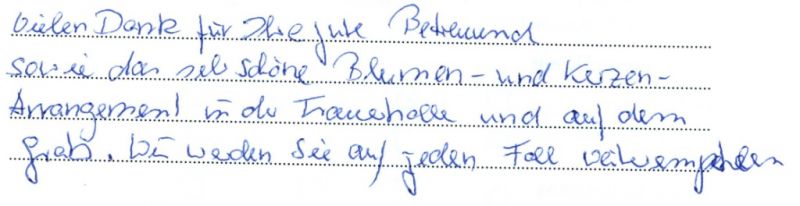 Vielen Dank für Ihre gute Betreuung
sowie das sehr schöne Blumen- und Kerzen-
Arrangement in der Trauerhalle und auf dem
Grab. Wir werden Sie auf jeden Fall weiterempfehlen